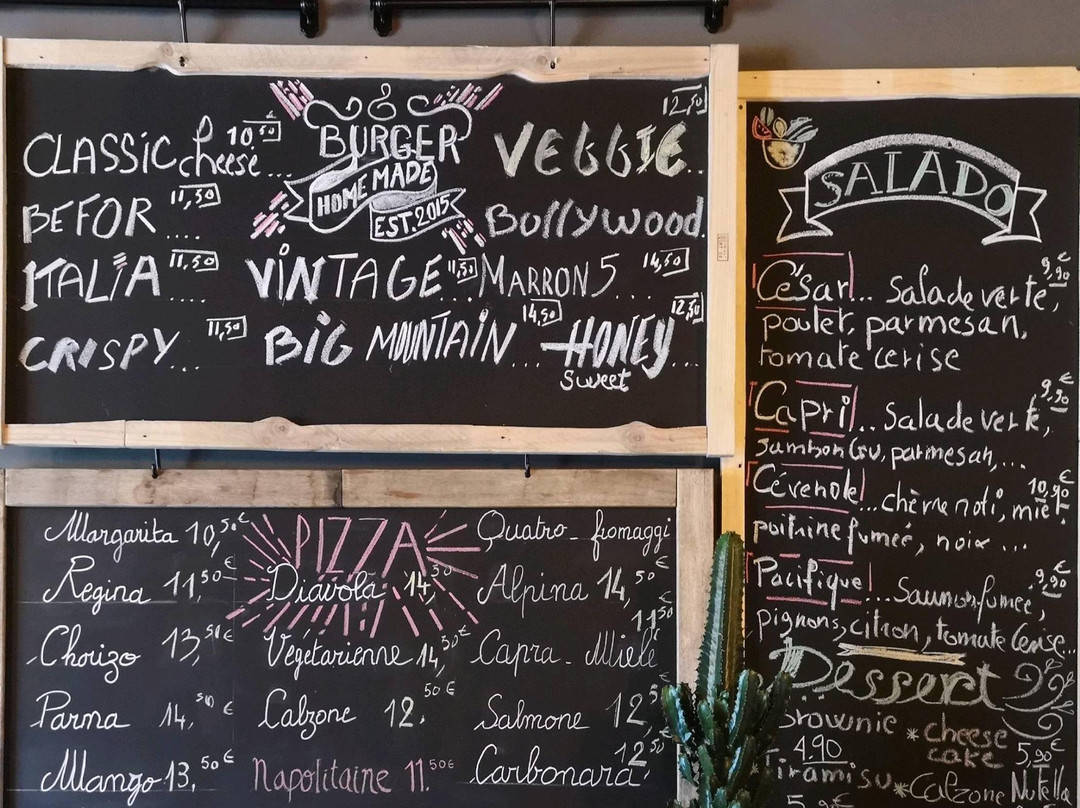 BURGER
HOME MADE
EST. 2015
CLASSIC cheese... 10,50
BEFOR .... 11,50
ITALIA .... 11,50
CRISPY... 11,50
VINTAGE... 11,50
BIG MOUNTAIN... 14,50
VEGGIE.. 12,50
Bollywood.
MARRON 5... 14,50
HONEY... 12,50
Sweet
PIZZA
Margarita 10,50€
Regina 11,50€
Chorizo 13,50€
Parma 14,50€
Mango 13,50€
Diavola 14,50
Végétarienne 14,50€
Calzone 12,50€
Napolitaine 11.50€
Quatro-fromaggi
Alpina 14,50€
11,50
Capra-Miele
Salmone 12,50
12,50
Carbonara
SALADO
César... Salade verte, 9,90€
poulet, parmesan,
tomate cerise
Capri... Salade verte, 9,90€
Jambon cru, parmesan,...
Cévenole... chèvre roti, miel 10,90€
poitrine fumée, noix ...
Pacifique... Saumon fumée, 9,90€
pignons, citron, tomate cerise...
Dessert
Brownie * cheese
4,90 cake 5,90€
Tiramisu * Calzone Nutella
5,90€